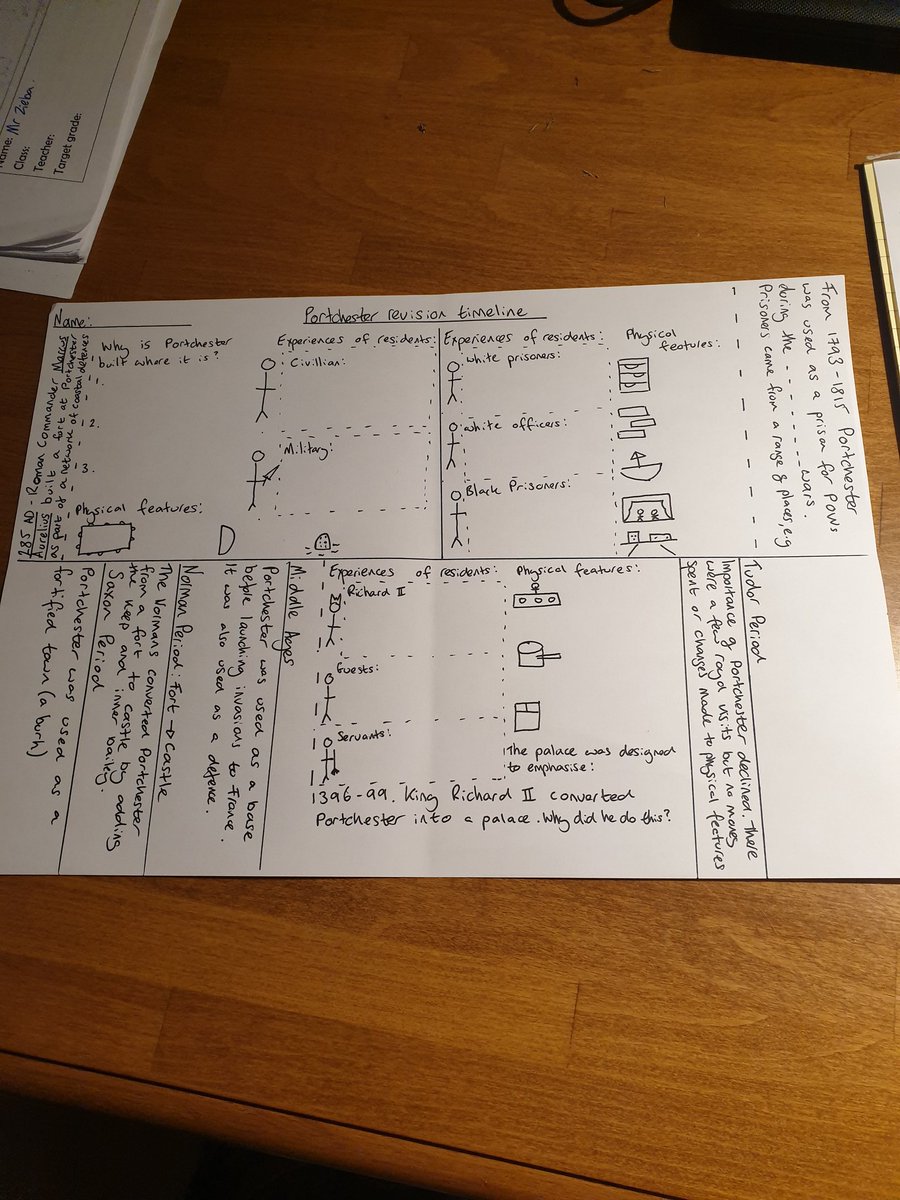 Name: Mr Zieba
Class:
Teacher:
Target grade:
Name:
Portchester revision timeline
285 AD - Roman Commander Marcus
Aurelius built a fort at Portchester
as part of a network of coastal defenses
Why is Portchester
built where it is?
1.
2.
3.
Physical features:
Experiences of residents:
Civillian:
Military:
Experiences of residents:
White prisoners:
White officers:
Black Prisoners:
Physical
features:
From 1793-1815 Portchester
was used as a prison for POWs
during the - - - - - - - wars.
Prisoners came from a range of places, e.g
Portchester was used as a
fortified town (a burh)
Saxon Period
The Normans converted Portchester
from a fort to castle by adding
the keep and inner bailey.
Norman Period: Fort → Castle
Middle Ages
Portchester was used as a base
before launching invasions to France.
It was also used as a defence.
Experiences of residents:
Richard II
Guests:
Servants:
Physical features:
The palace was designed
to emphasise:
1396-99. King Richard II converted
Portchester into a palace. Why did he do this?
Tudor Period
Importance of Portchester declined. There
were a few royal visits but no money
spent or changes made to physical features